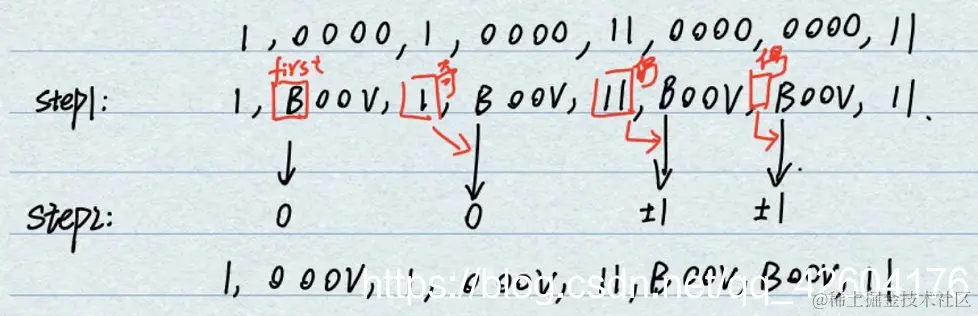 1, 0000, 1, 0000, 11, 0000, 0000, 11
first 奇 偶 偶
step1: 1, B00V, 1, B00V, 11, B00V, B00V, 11.
step2: 0 0 ±1 ±1
1, 000V, 1, 000V, 11, B00V, B00V, 11
https://blog.csdn.net/qq_42604176
@稀土掘金技术社区